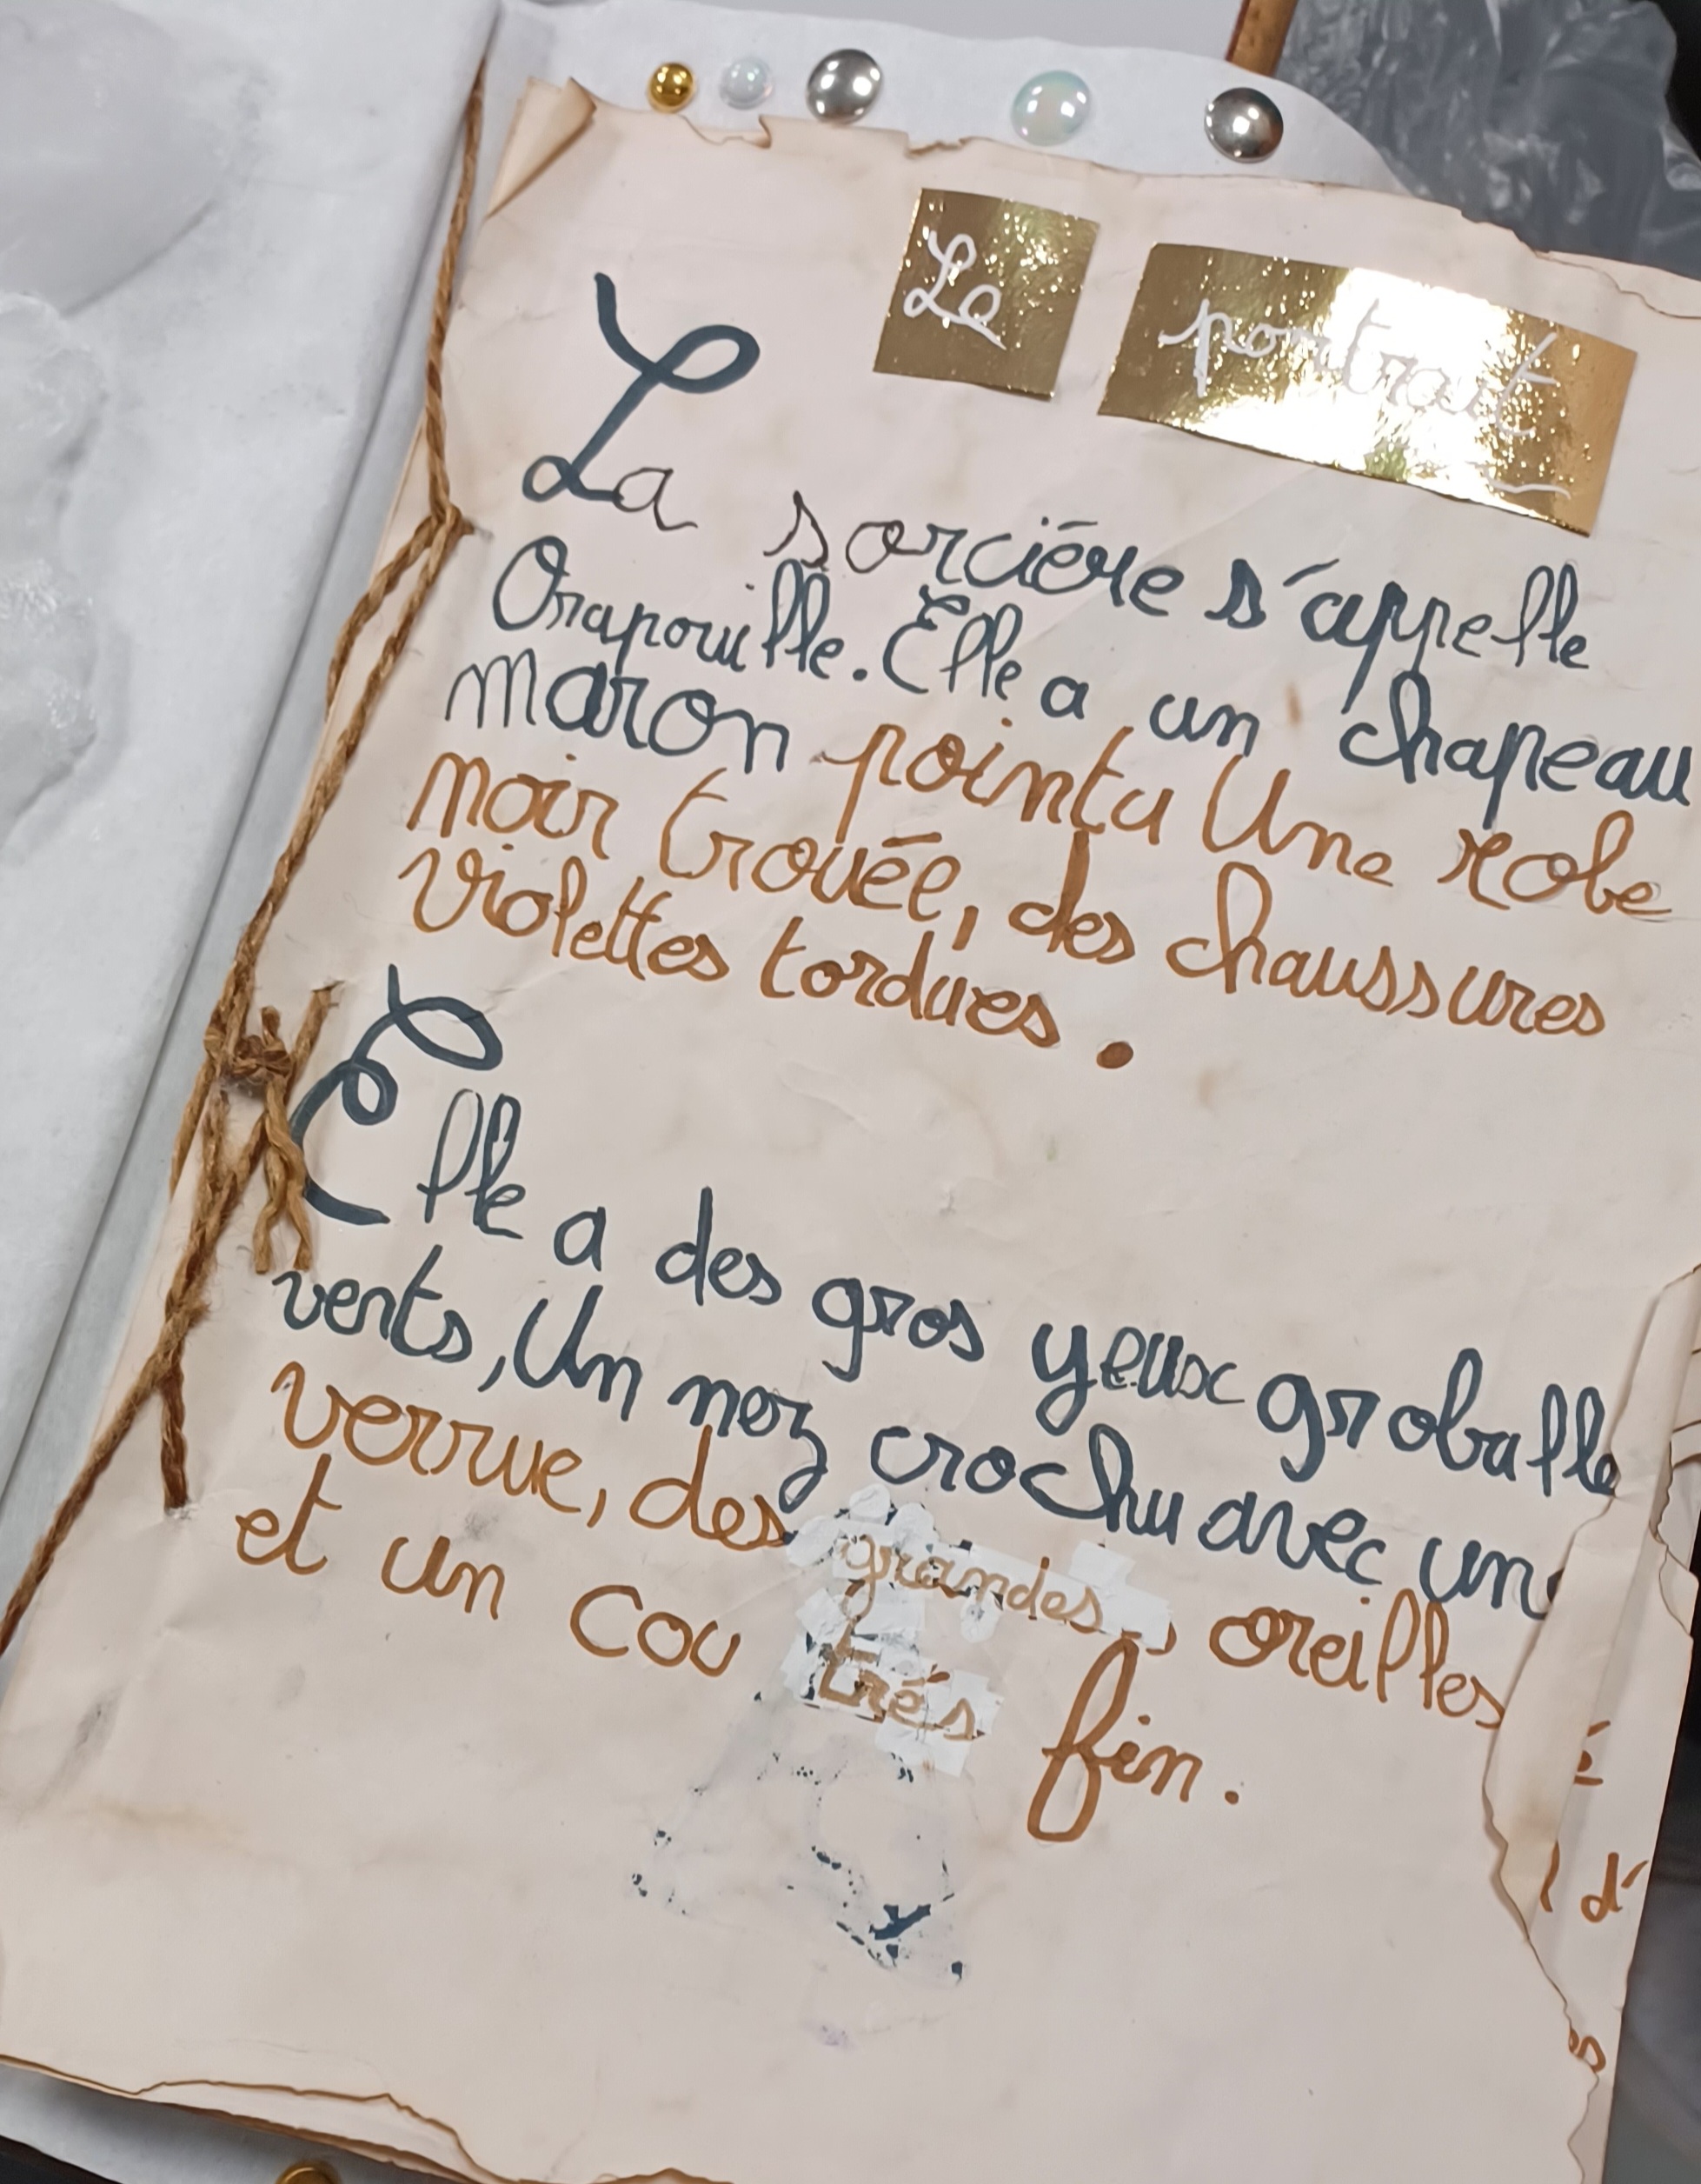 Le portrait
La sorciére s'appelle
Orapouille. Elle a un chapeau
maron pointu Une robe
noir trouée, des chaussures
violettes tordues.
Elle a des gros yeux groballe
verts, Un nez crochu avec une
verrue, des grandes oreilles
et un cou trés fin.
d'